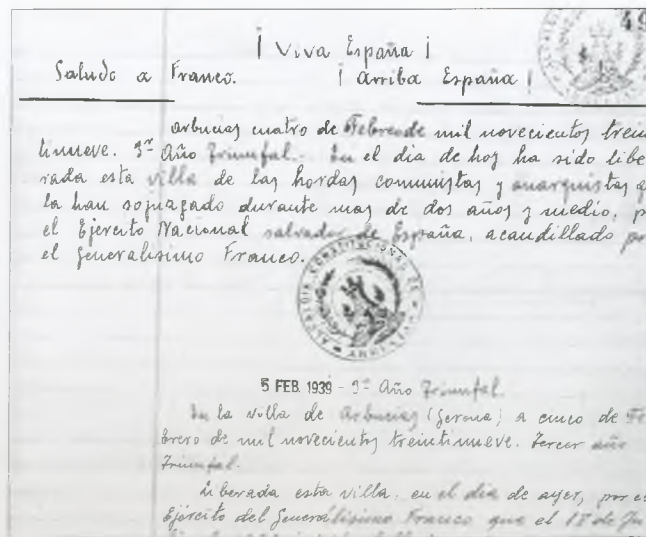 49
¡ Viva España ¡
Saludo a Franco. ¡ Arriba España ¡
Arbucias cuatro de Febrero de mil novecientos trein
tinueve. 3er Año Triunfal. En el dia de hoy ha sido libe
rada esta villa de las hordas comunistas y anarquistas q
la han sojuzgado durante mas de dos años y medio, p
el Ejercito Nacional salvador de España, acaudillado po
el Generalisimo Franco.
ALCALDIA CONSTITUCIONAL DE
ARBUCIAS
5 FEB. 1939 - 3er Año Triunfal.
En la villa de Arbucias (Gerona) a cinco de Fe
brero de mil novecientos treintinueve. Tercer año
Triunfal.
Liberada esta villa, en el dia de ayer, por e
Ejército del Generalisimo Franco que el 18 de Ju